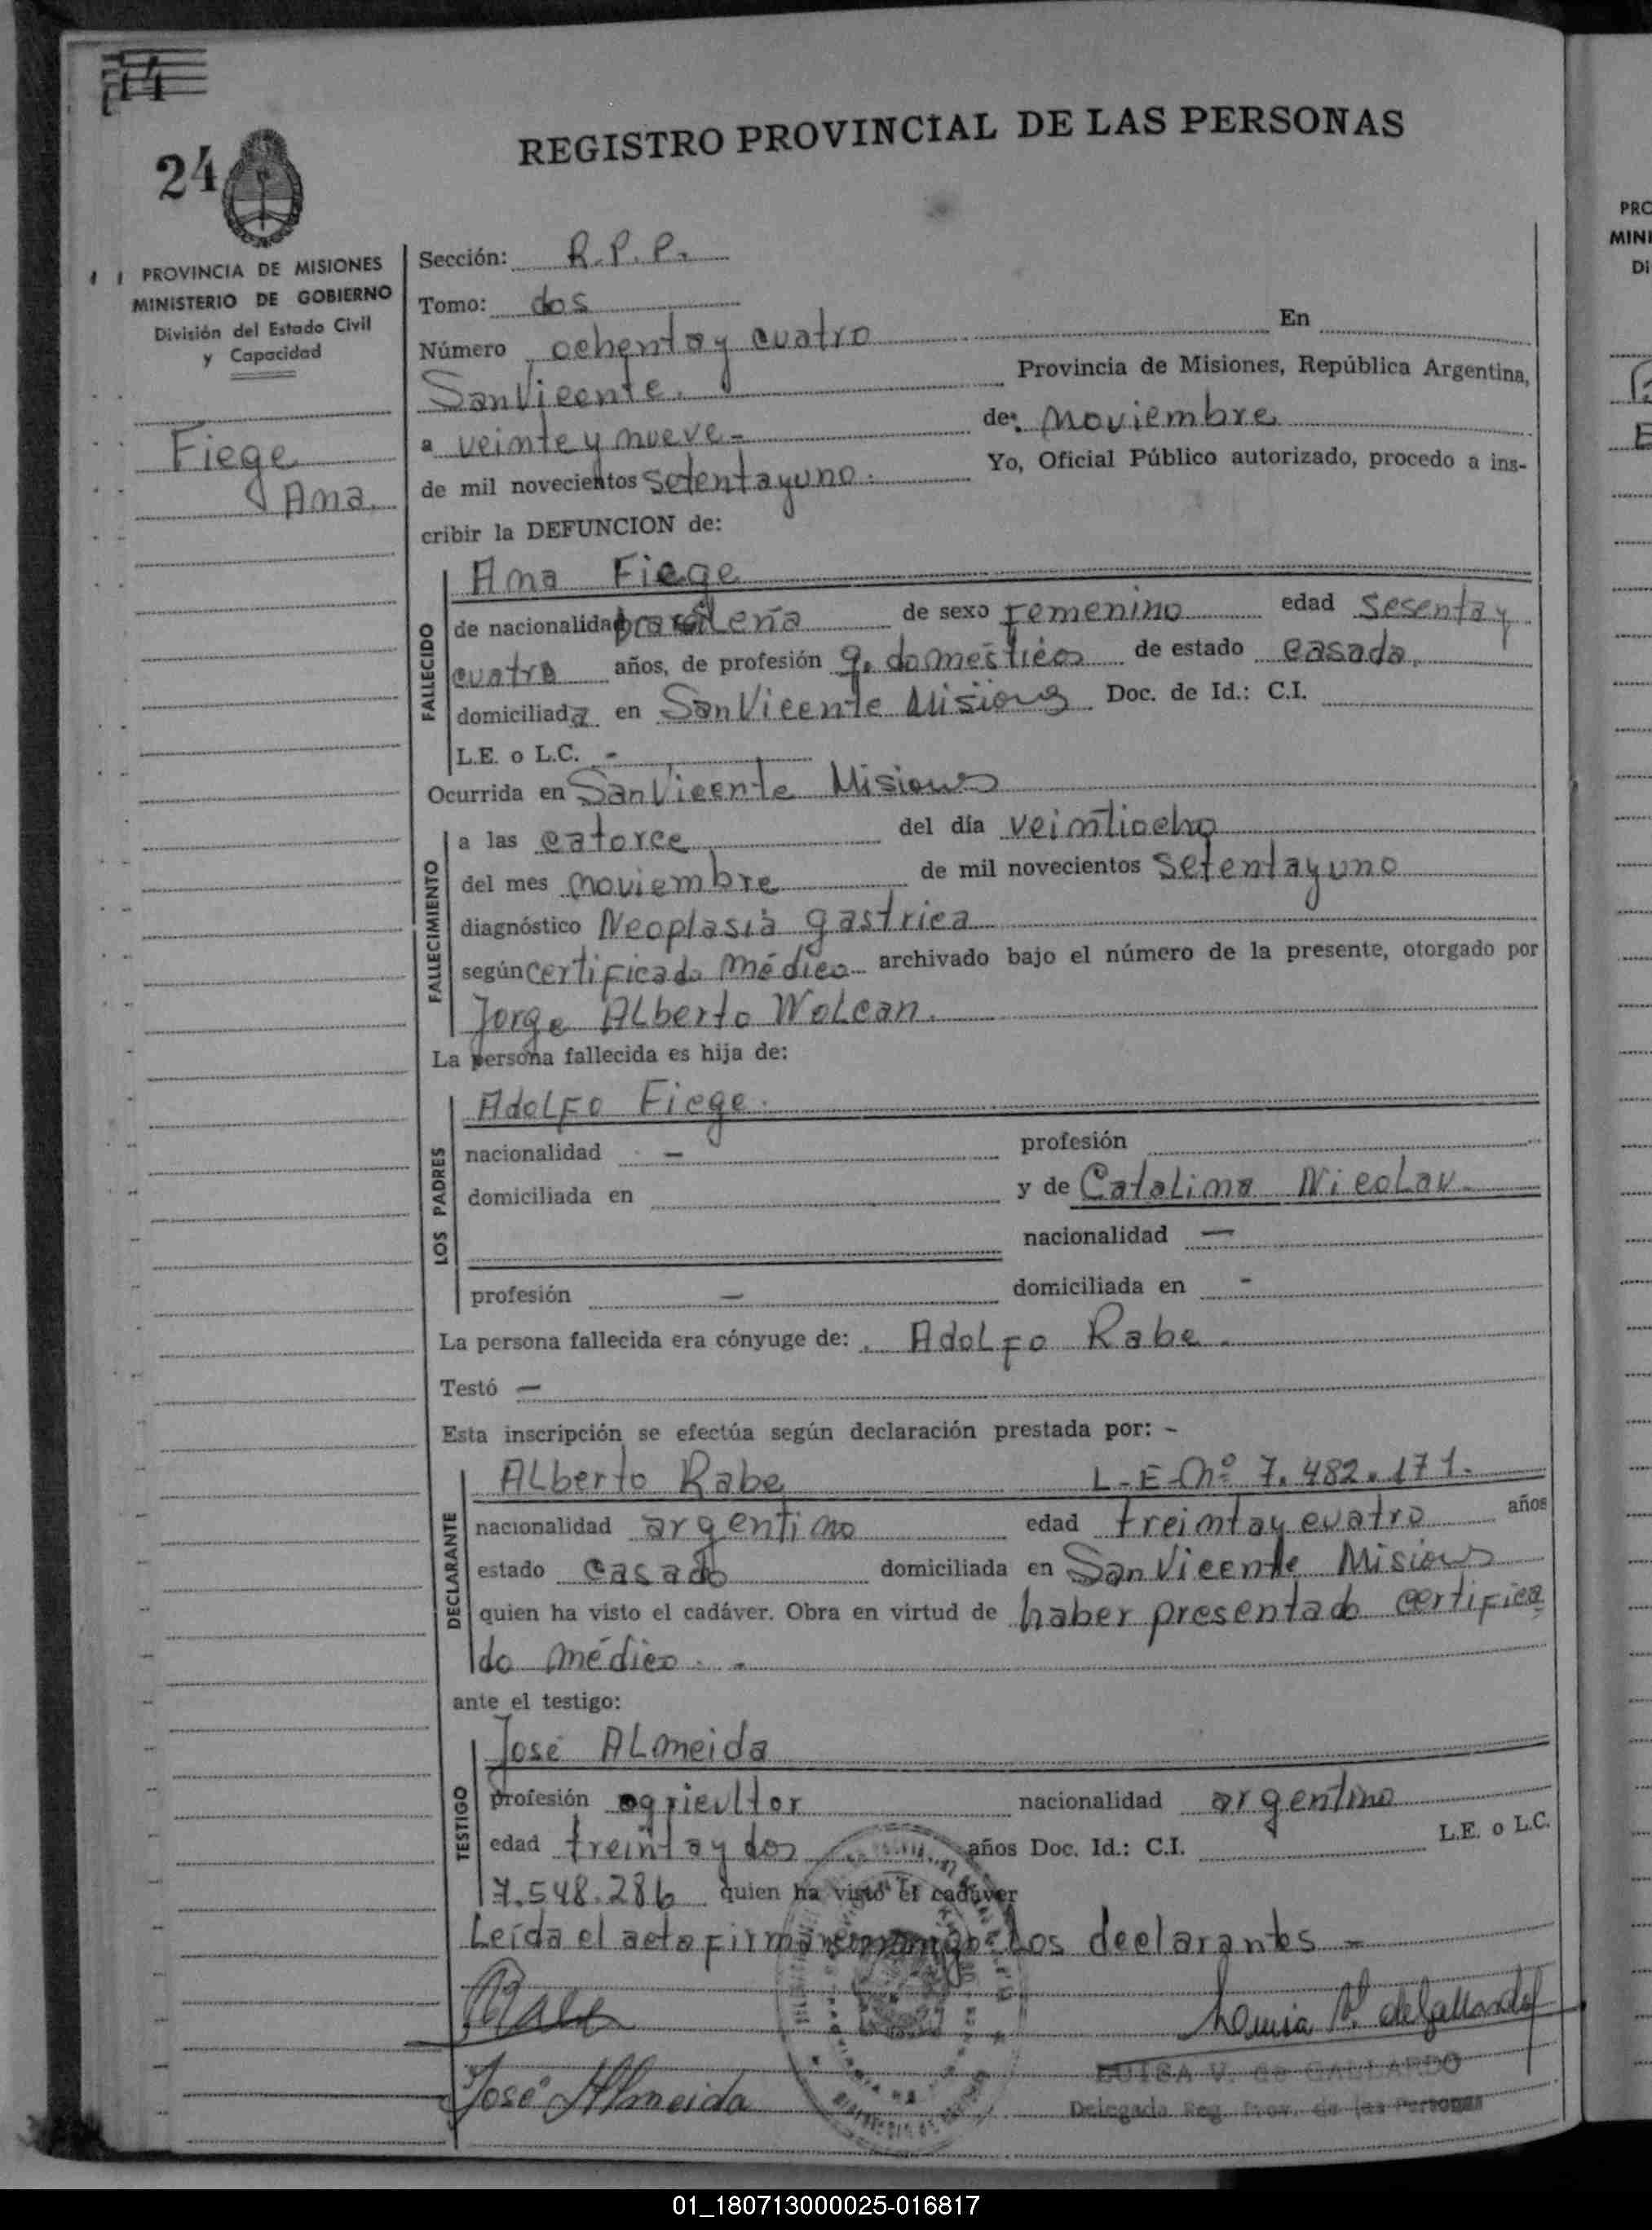 14
24
REGISTRO PROVINCIAL DE LAS PERSONAS
PROVINCIA DE MISIONES
MINISTERIO DE GOBIERNO
División del Estado Civil
y Capacidad
Fiege
Ana.
Sección: R.P.P.
Tomo: dos
Número ochenta y cuatro En
San Vicente. Provincia de Misiones, República Argentina,
a veinte y nueve - de: noviembre
de mil novecientos setenta y uno. Yo, Oficial Público autorizado, procedo a ins-
cribir la DEFUNCION de:
FALLECIDO
Ana Fiege
de nacionalidad brasileña de sexo femenino edad sesenta y
cuatro años, de profesión q. domesticos de estado casada.
domiciliada en San Vicente Misiones Doc. de Id.: C.I.
L.E. o L.C. -
Ocurrida en San Vicente Misiones
FALLECIMIENTO
a las catorce del día veintiocho
del mes noviembre de mil novecientos setenta y uno
diagnóstico Neoplasia gastrica
según certificado médico archivado bajo el número de la presente, otorgado por
Jorge Alberto Wolcan.
La persona fallecida es hija de:
LOS PADRES
Adolfo Fiege.
nacionalidad - profesión
domiciliada en y de Catalina Nicolau.
nacionalidad -
profesión - domiciliada en -
La persona fallecida era cónyuge de: Adolfo Rabe.
Testó -
Esta inscripción se efectúa según declaración prestada por: -
DECLARANTE
Alberto Rabe L-E-Nº 7.482.171.
nacionalidad argentino edad treinta y cuatro años
estado casado domiciliada en San Vicente Misiones
quien ha visto el cadáver. Obra en virtud de haber presentado certifica
do médico. -
ante el testigo:
TESTIGO
José Almeida
profesión agricultor nacionalidad argentino
edad treinta y dos años Doc. Id.: C.I. L.E. o L.C.
7.548.286 quien ha visto el cadáver
Leída el acta firman los declarantes -
Rabe
Luisa V. de Gallardo
José Almeida
LUISA V. de GALLARDO
Delegada Reg. Prov. de las Personas
PRO
MINI
Di
01_180713000025-016817